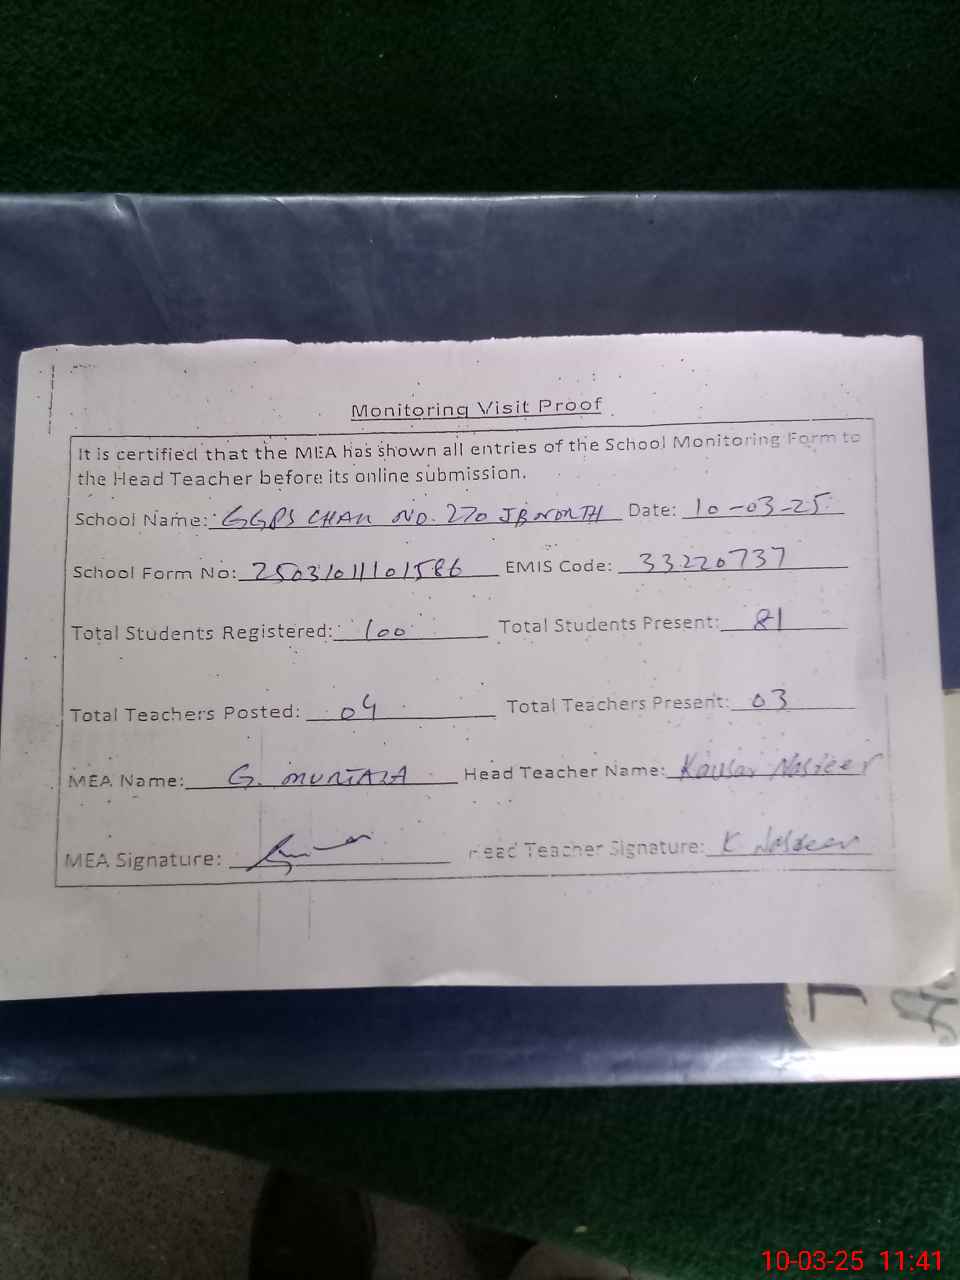 Monitoring Visit Proof
It is certified that the MEA has shown all entries of the School Monitoring Form to
the Head Teacher before its online submission.
School Name: GGPS CHAK NO. 270 JB NORTH Date: 10-03-25
School Form No: 2503101101586 EMIS Code: 33220737
Total Students Registered: 100 Total Students Present: 81
Total Teachers Posted: 04 Total Teachers Present: 03
MEA Name: G. MURTAZA Head Teacher Name: Kausar Naseer
MEA Signature: Head Teacher Signature: K Naseer
10-03-25 11:41